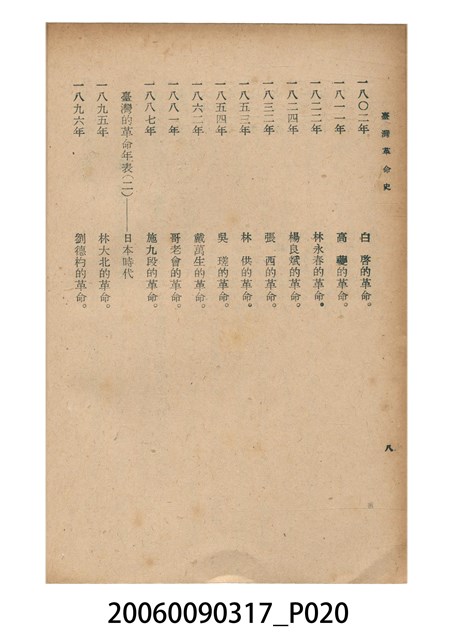 臺灣革命史
一八〇二年 白啓的革命。
一八一一年 高夔的革命。
一八二二年 林永春的革命。
一八二四年 楊良斌的革命。
一八三二年 張丙的革命。
一八五三年 林供的革命。
一八五四年 吳瑳的革命。
一八六二年 戴萬生的革命。
一八八一年 哥老會的革命。
一八八七年 施九段的革命。
臺灣的革命年表(二)——日本時代
一八九五年 林大北的革命。
一八九六年 劉德杓的革命。
八
20060090317_P020